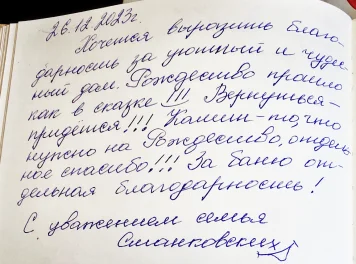 26.12.2023г.
Хочется выразить благо-
дарность за уютный и чудес-
ный дом. Рождество прошло
как в сказке!!! Вернуться-
придётся!!! Камин-то, что
нужно на Рождество, отдель-
ное спасибо!!! За баню от-
дельная благодарность!
С уважением семья
Сманковских